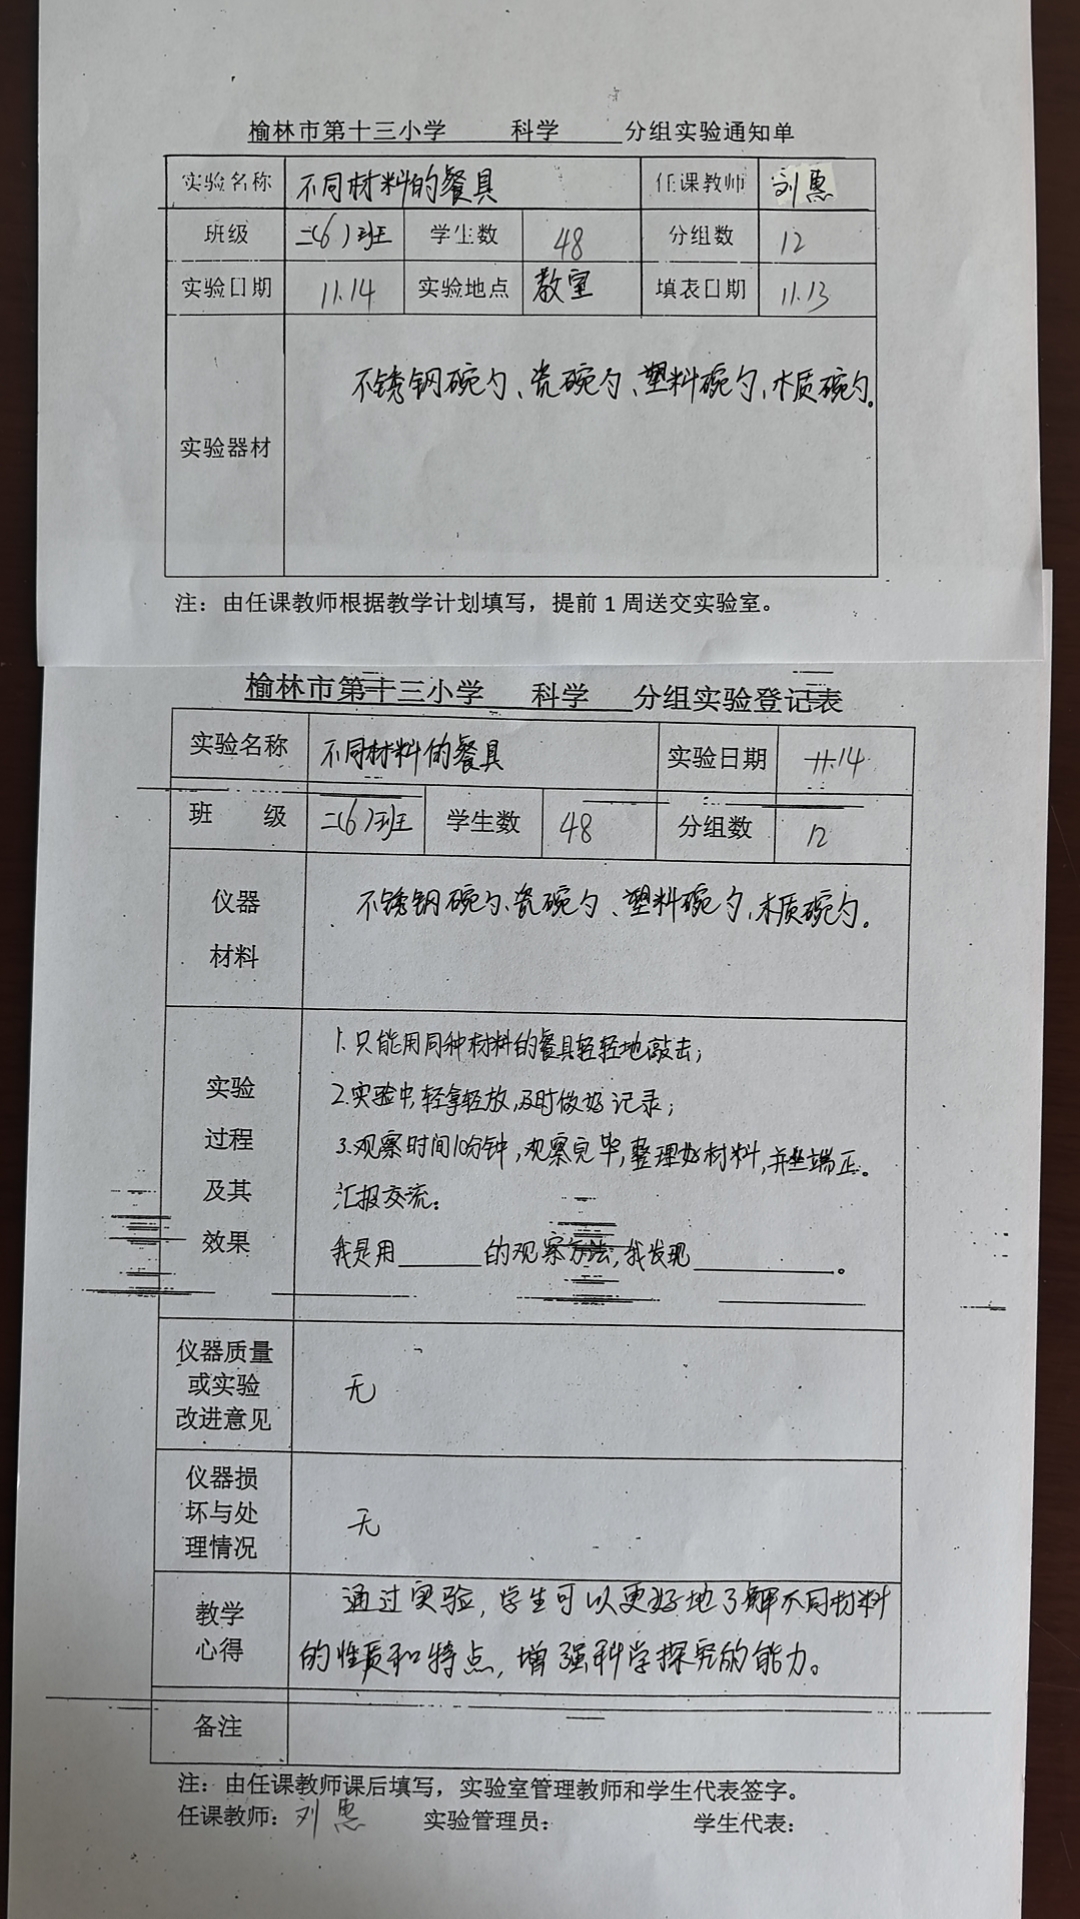 榆林市第十三小学 科学 分组实验通知单
实验名称 不同材料的餐具 任课教师 刘惠
班级 二(6)班 学生数 48 分组数 12
实验日期 11.14 实验地点 教室 填表日期 11.13
实验器材 不锈钢碗勺、瓷碗勺、塑料碗勺、木质碗勺。
注：由任课教师根据教学计划填写，提前1周送交实验室。
榆林市第十三小学 科学 分组实验登记表
实验名称 不同材料的餐具 实验日期 11.14
班 级 二(6)班 学生数 48 分组数 12
仪器
材料
不锈钢碗勺、瓷碗勺、塑料碗勺、木质碗勺。
实验
过程
及其
效果
1.只能用同种材料的餐具轻轻地敲击；
2.实验中,轻拿轻放,及时做好记录；
3.观察时间10分钟,观察完毕,整理好材料,并坐端正。
汇报交流：
我是用______的观察方法,我发现__________。
仪器质量
或实验
改进意见
无
仪器损
坏与处
理情况
无
教学
心得
通过实验,学生可以更好地了解不同材料
的性质和特点,增强科学探究的能力。
备注
注：由任课教师课后填写，实验室管理教师和学生代表签字。
任课教师：刘惠 实验管理员： 学生代表：